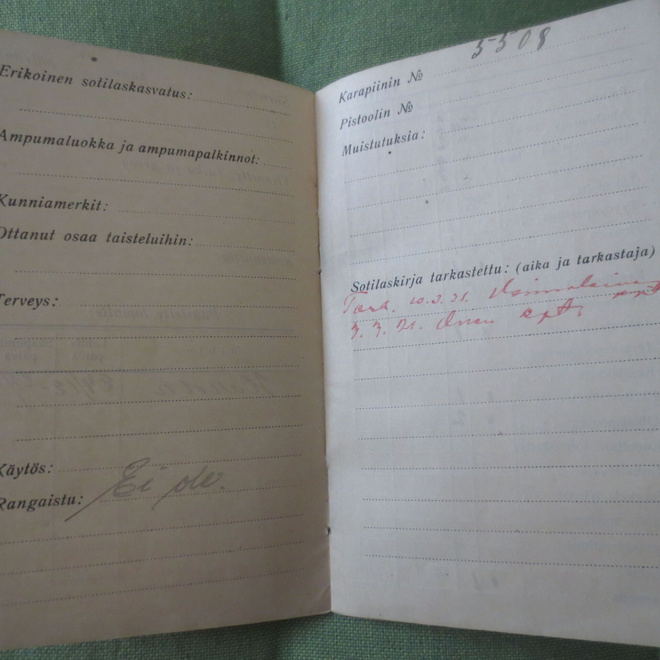 Erikoinen sotilaskasvatus:
Ampumaluokka ja ampumapalkinnot:
Kunniamerkit:
Ottanut osaa taisteluihin:
Terveys:
Käytös:
Rangaistu: Ei ole.
Karapiinin № 5508
Pistoolin №
Muistutuksia:
Sotilaskirja tarkastettu: (aika ja tarkastaja)
Tark. 10.2.21.
3.3.21.